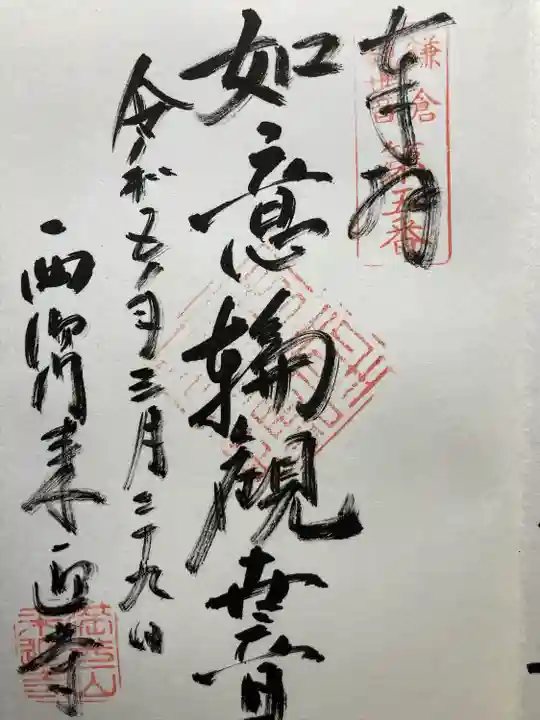 奉拝
鎌倉
観世音
第五番
如意輪観世音
令和五年三月二十九日
西御門来迎寺